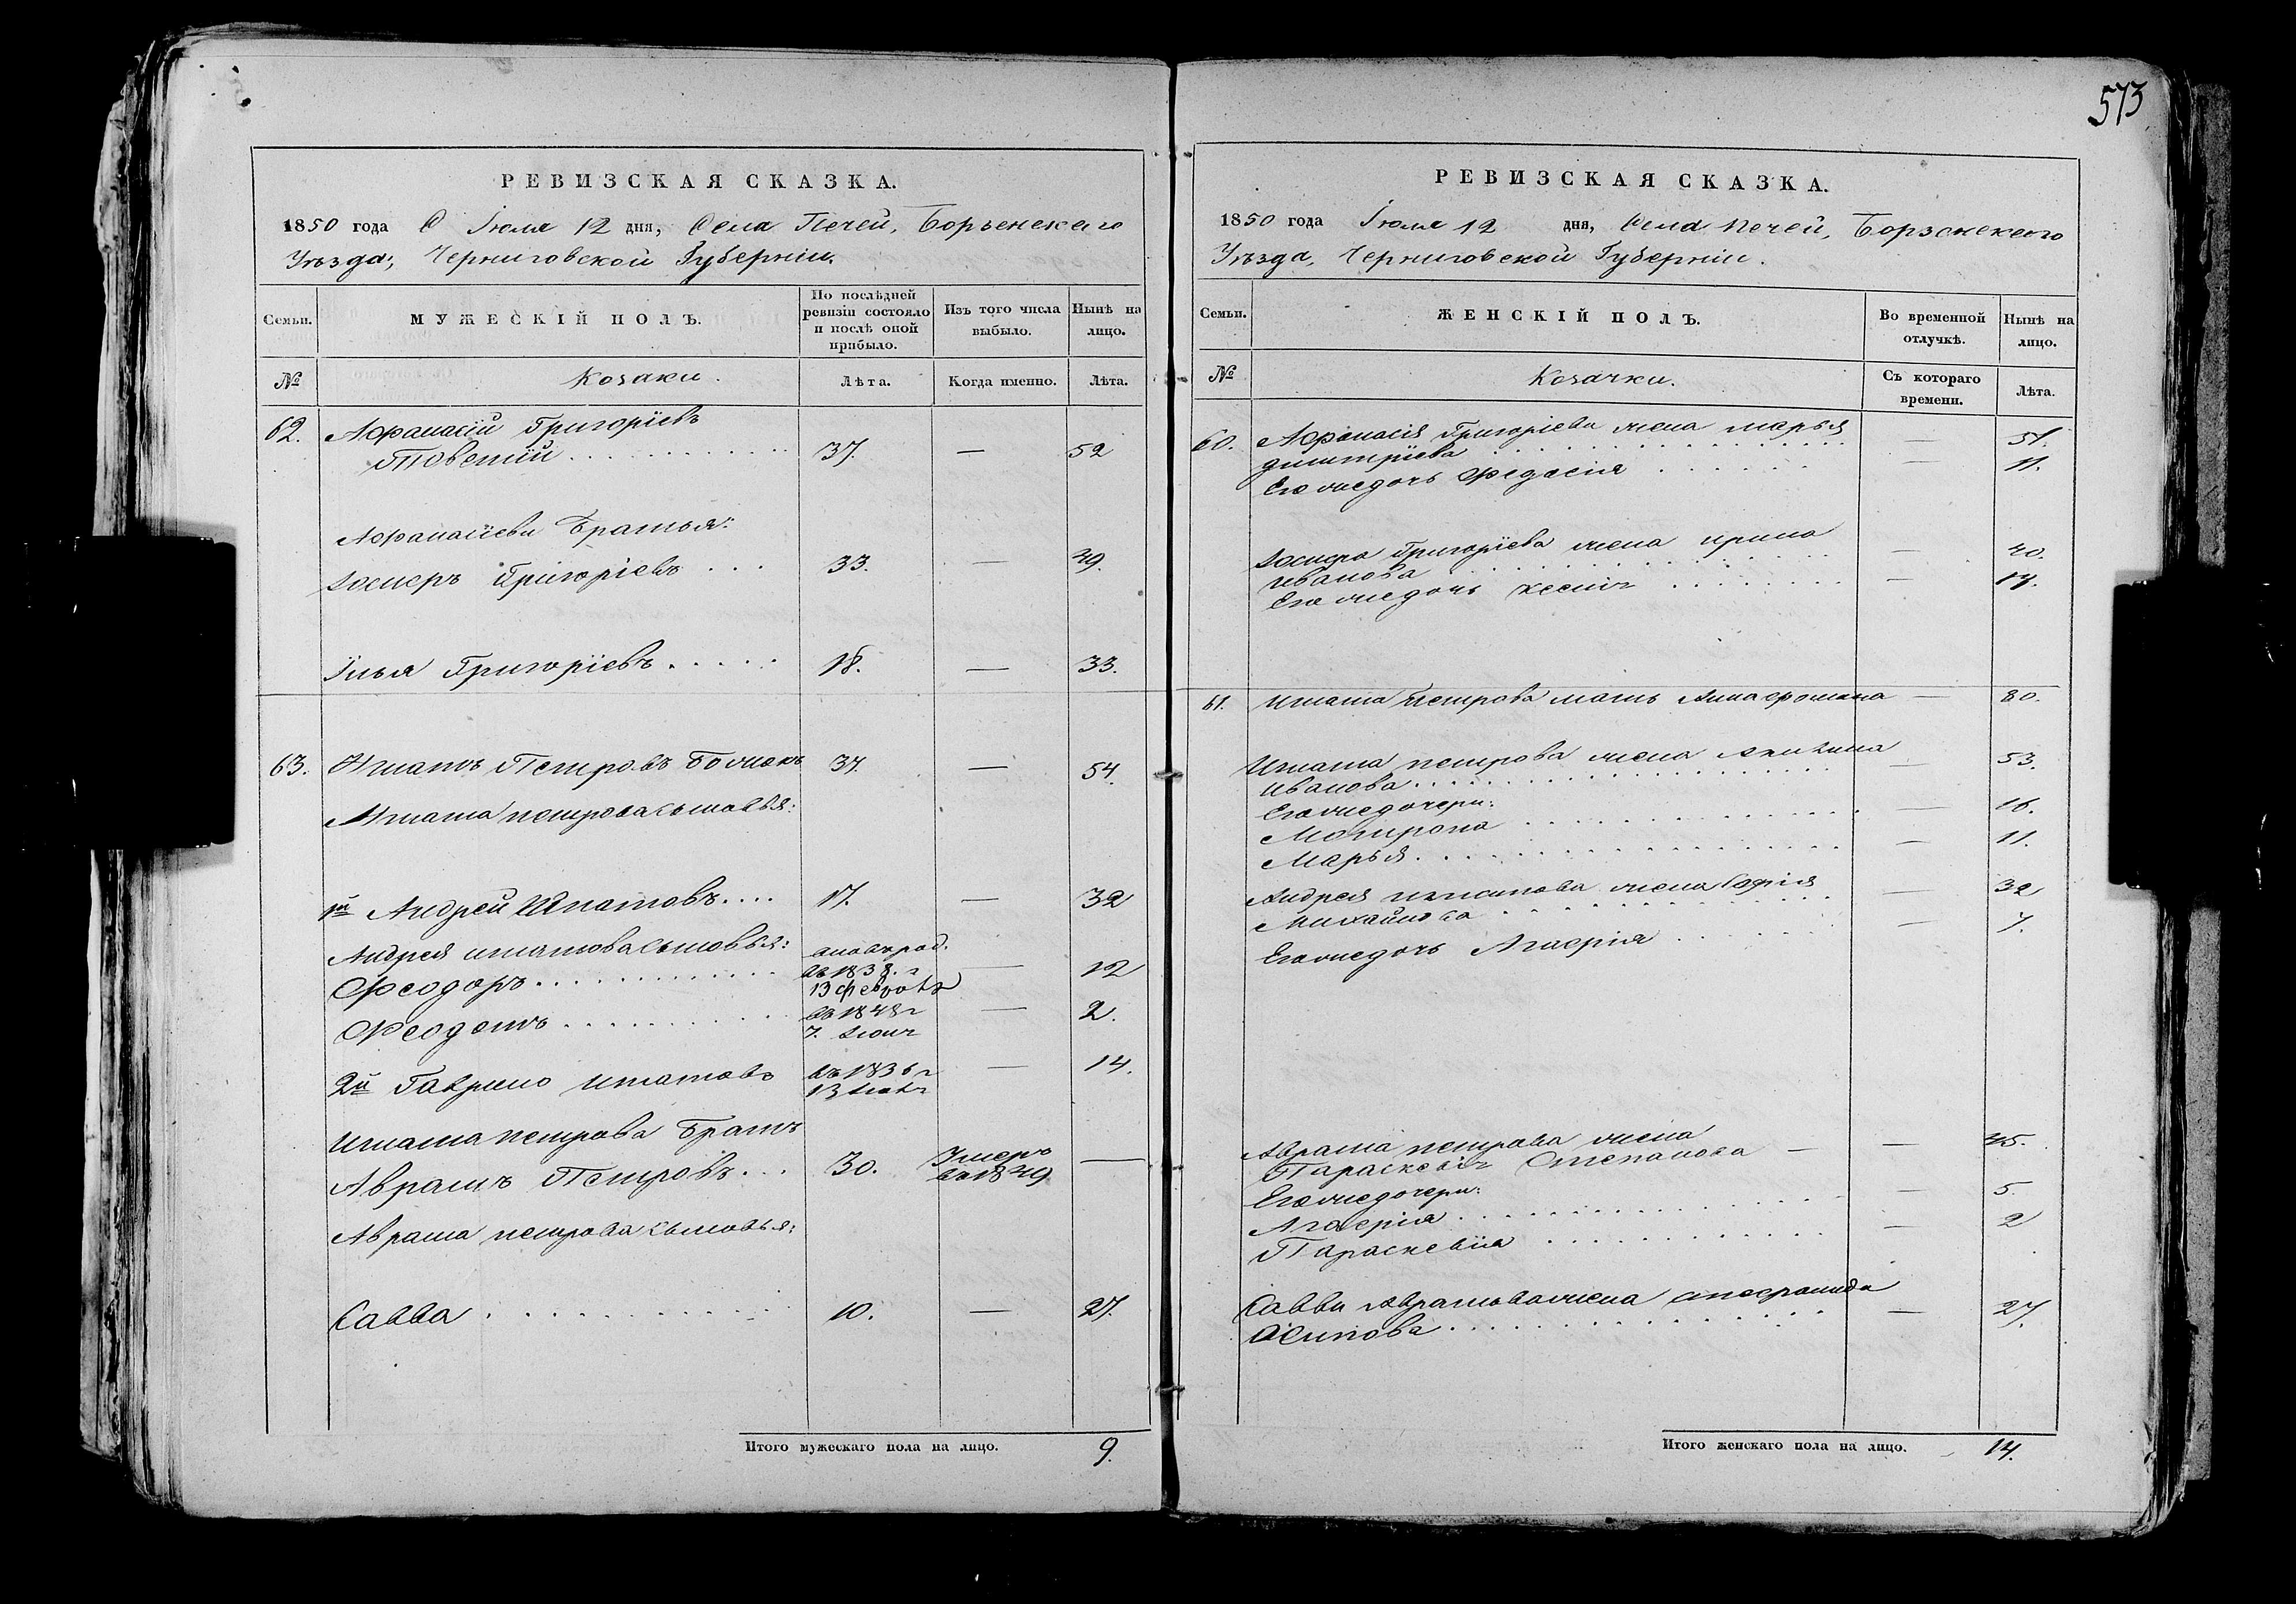 РЕВИЗСКАЯ СКАЗКА.
1850 года Іюля 12 дня, Села Печей, Борзенскаго
Уѣзда, Черниговской Губерніи.
Семьи.
МУЖЕСКІЙ ПОЛЪ.
По послѣдней
ревизіи состояло
и послѣ оной
прибыло.
Изъ того числа
выбыло.
Нынѣ на
лицо.
№
Козаки.
Лѣта.
Когда именно.
Лѣта.
62. Афанасій Григоріевъ
Товстій 37. — 52
Афанасіеви Братья:
Іосифъ Григоріевъ 33. — 49.
Илья Григоріевъ 18. — 33.
63. Игнатъ Петровъ Божокъ 37. — 54.
Игната петрова сыновья:
1й Андрей Игнатовъ 17. — 32
Андрея игнатова сыновья:
Феодоръ въ 1838 г — 12
13 феврал
Феодотъ въ 1848 г — 2.
7.
2й Гаврило игнатовъ въ 1836 г — 14.
13
Игната петрова Братъ
Аврамъ Петровъ 30. Умеръ
въ 1849 —
Аврама петрова сыновья:
Савва 10. — 27.
Итого мужескаго пола на лицо. 9.
573
РЕВИЗСКАЯ СКАЗКА.
1850 года Іюля 12 дня, Села Печей, Борзенскаго
Уѣзда, Черниговской Губерніи.
Семьи.
ЖЕНСКІЙ ПОЛЪ.
Во временной
отлучкѣ.
Нынѣ на
лицо.
№
Козачки.
Съ котораго
времени.
Лѣта.
60. Афанасія Григоріева жена марья
димитріева — 51.
Его же дочь Федосія — 11.
Іосифа Григоріева жена ирина
иванова — 40.
Его же дочь — 17.
61. Игната Петрова мать Анна — 80.
Игната петрова жена Акилина
иванова — 53.
Его же дочери:
Мотрона — 16.
Марья — 11.
Андрея игнатова жена Софія
Михайлова — 32
Его же дочь Агафія — 7.
Аврама петрова жена
Параскевія Степанова — 45.
Его же дочери:
Агафія — 5.
Параскевія — 2
Саввы Аврамова жена
Осипова — 27.
Итого женскаго пола на лицо. 14.